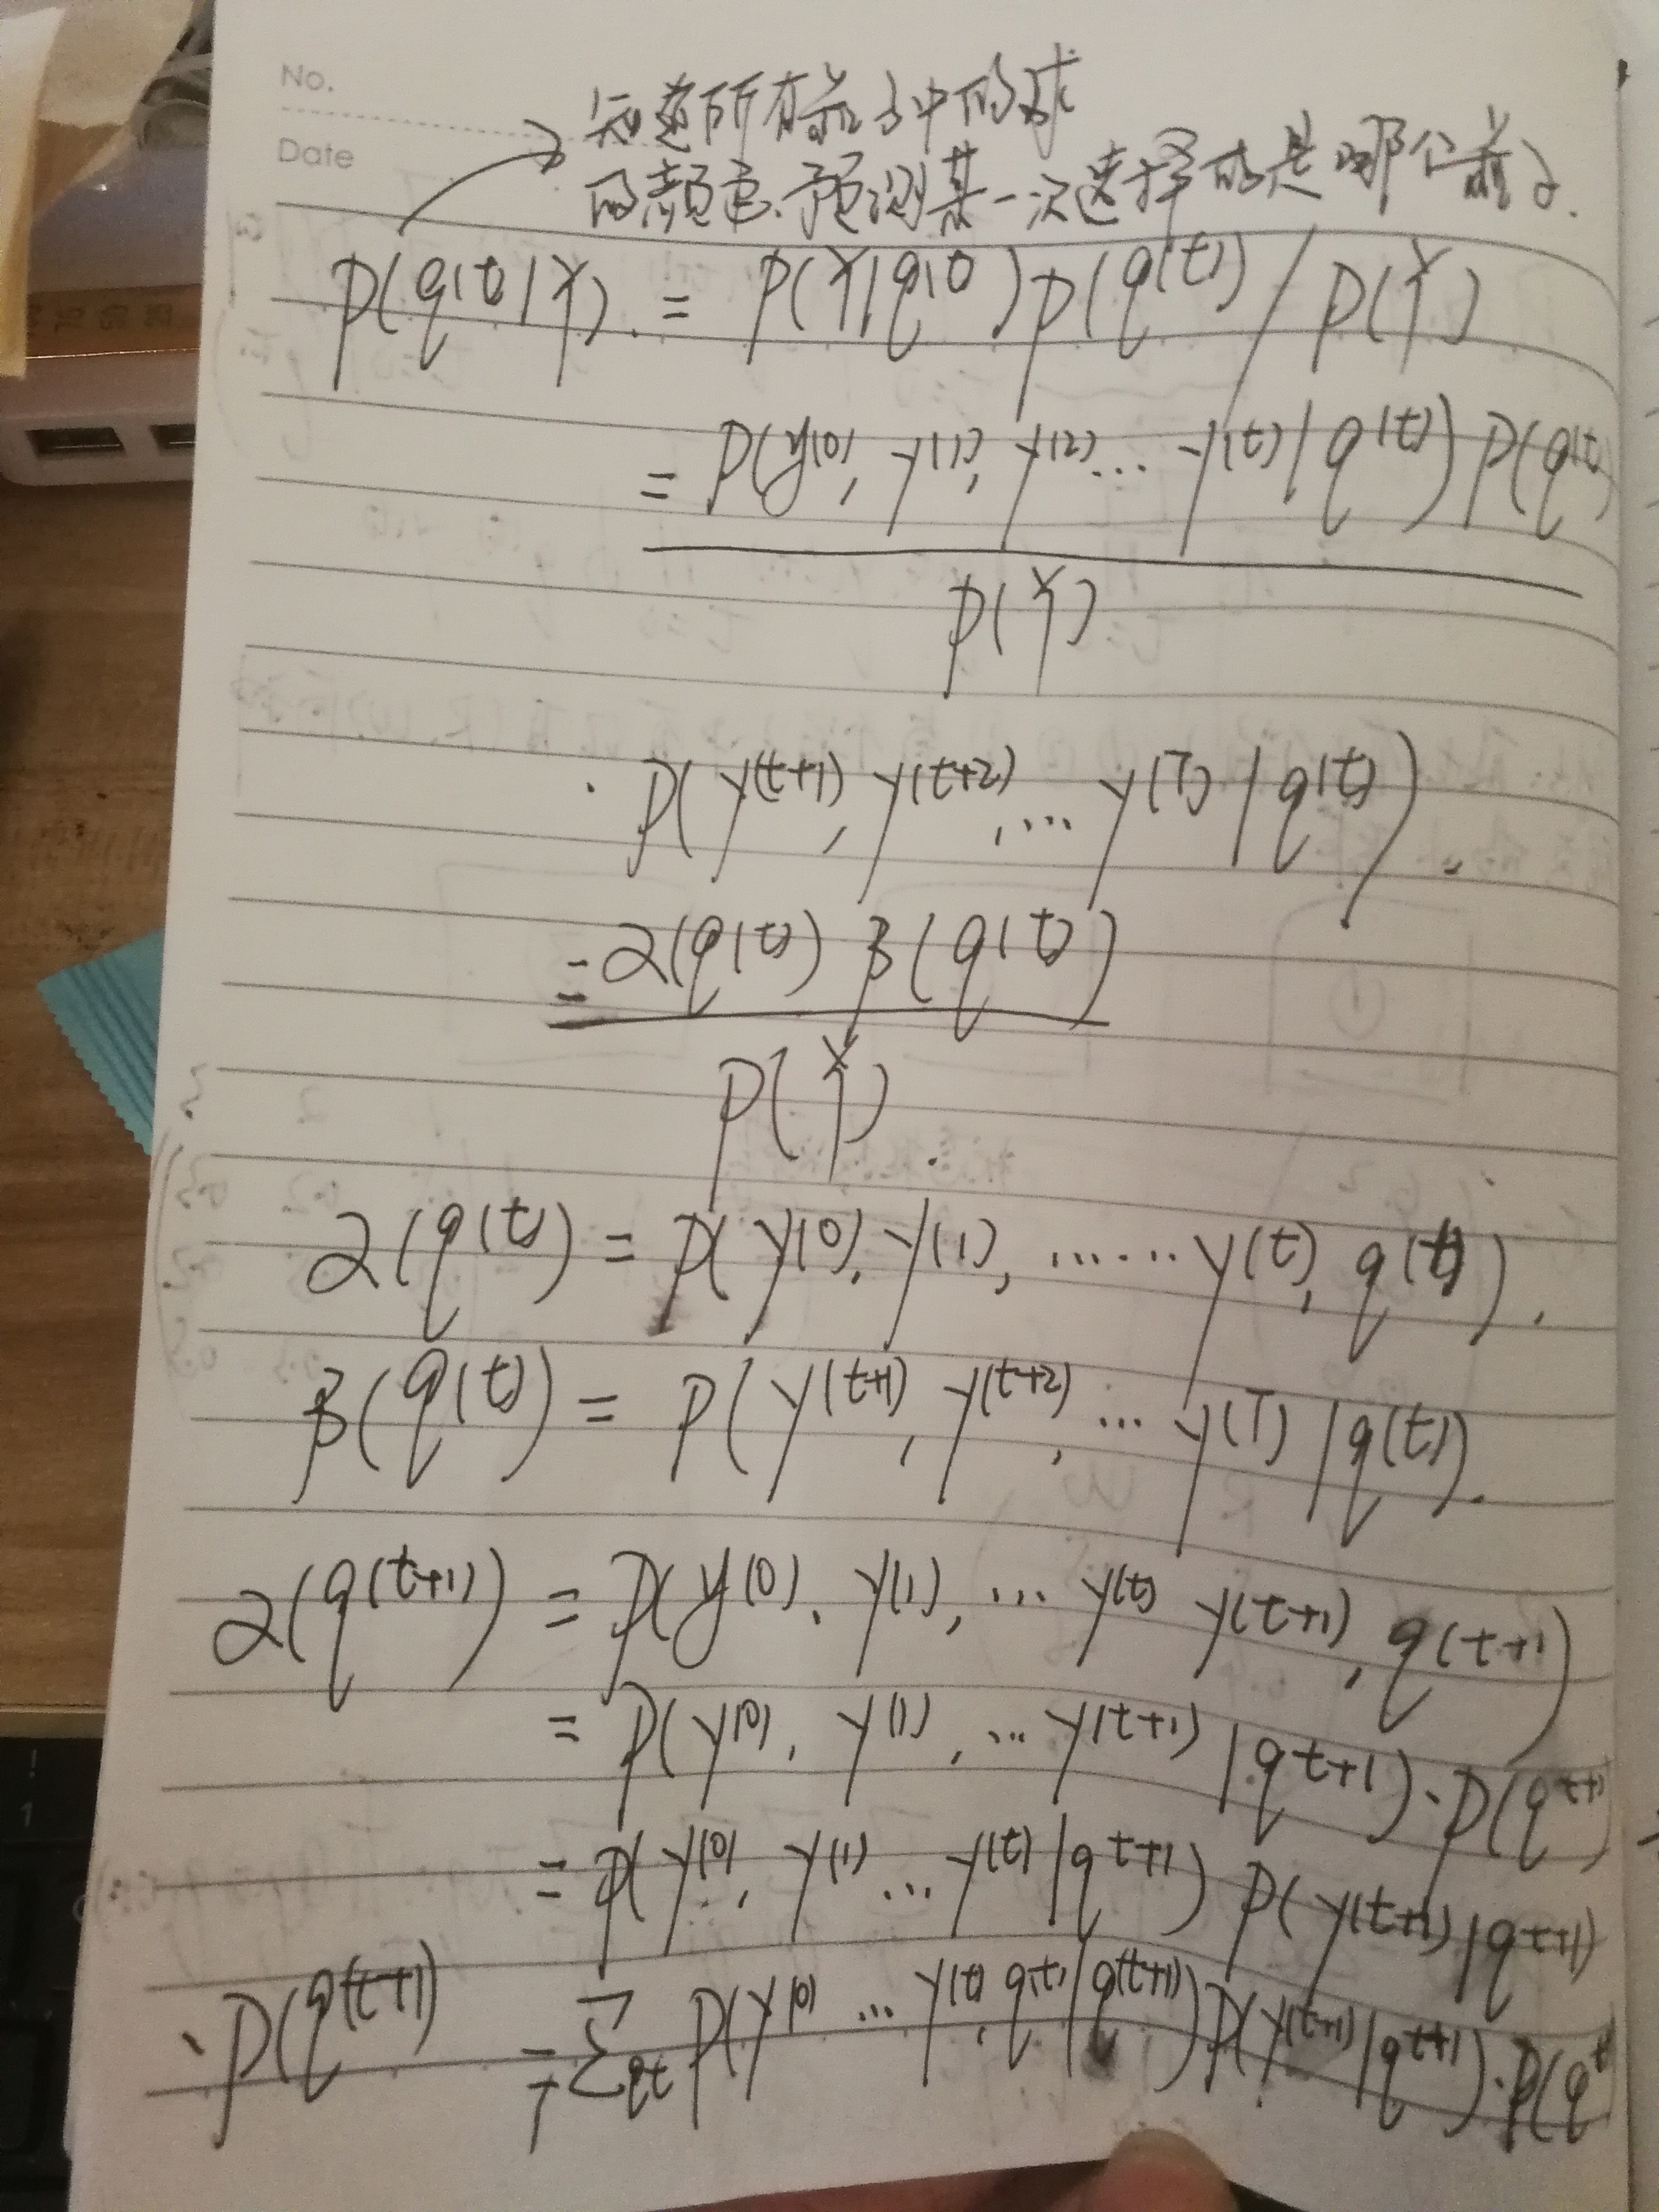 No.
Date
知道所有箱子中的球
的颜色,预测某一次选择的是哪个箱子.
P(q(t)|Y) = P(Y|q(t)) P(q(t)) / P(Y)
= P(y(0), y(1), y(2) ... y(t) | q(t)) P(q(t)
P(Y)
· P(y(t+1), y(t+2), ... y(T) | q(t)).
= α(q(t)) β(q(t))
P(Y).
α(q(t)) = P(y(0), y(1), ...... y(t), q(t)).
β(q(t)) = P(y(t+1), y(t+2), ... y(T) | q(t)).
α(q(t+1)) = P(y(0), y(1), ... y(t) y(t+1), q(t+1))
= P(y(0), y(1), ... y(t+1) | q t+1) · P(q t+1)
= P(y(0), y(1) ... y(t) | q t+1) P(y(t+1) | q t+1)
· P(q(t+1) = Σqt P(y(0) ... y(t) q(t) | q(t+1)) P(y(t+1) | q t+1) · P(q t